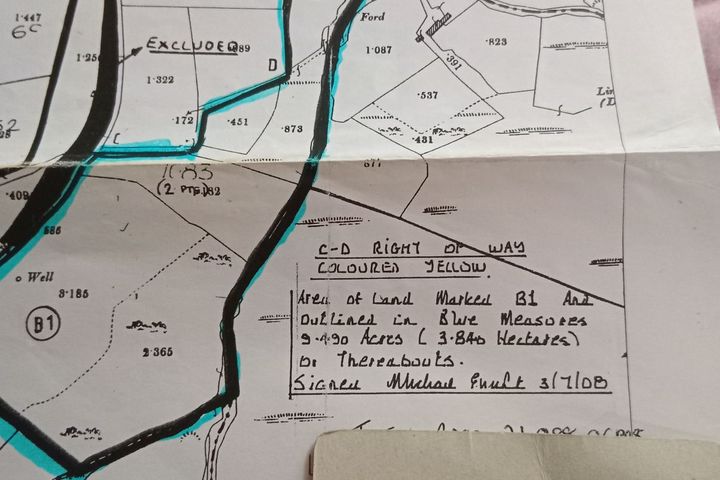 1·447
6c
Ford
1·087
·823
·391
EXCLUDED
·689
1·25
1·322
D
·537
·172
·451
·873
·431
C
11.83
(2 PTS)
·182
·677
·409
·585
Well
3·185
B1
2·365
C-D RIGHT OF WAY
COLOURED YELLOW.
Area of Land Marked B1 And
Outlined in Blue Measures
9.490 Acres (3.840 Hectares)
or Thereabouts.
Signed Michael 3/7/08